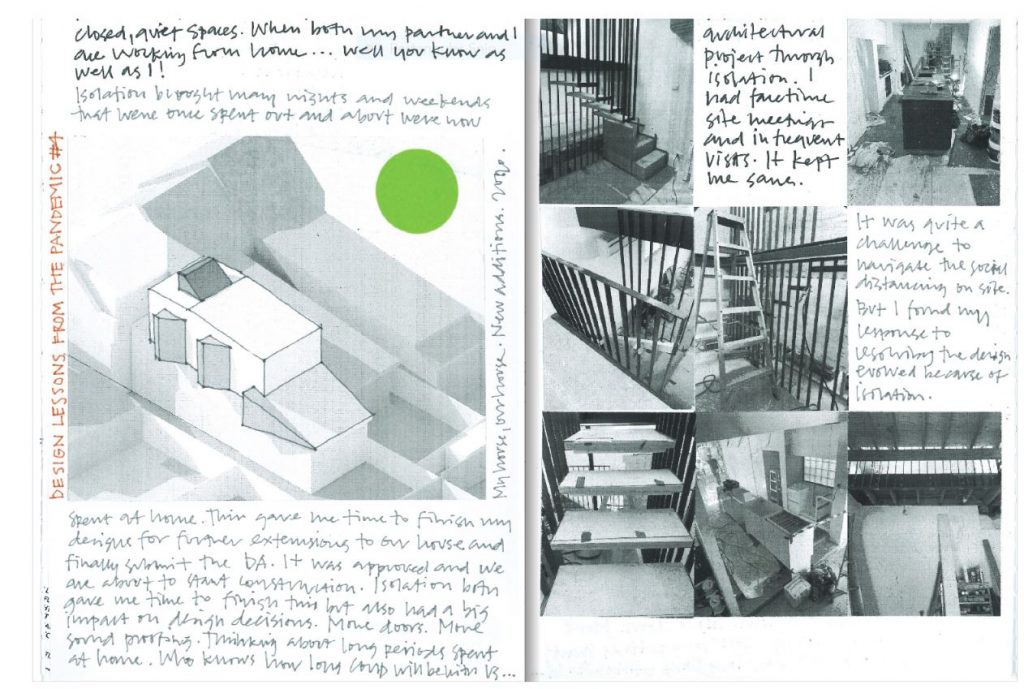 closed, quiet spaces. When both my partner and I
are working from home... well you know as
well as I!
Isolation brought many nights and weekends
that were once spent out and about were now
DESIGN LESSONS FROM THE PANDEMIC #4
My house, our house. New additions.
spent at home. This gave me time to finish my
designs for further extensions to our house and
finally submit the DA. It was approved and we
are about to start construction. Isolation both
gave me time to finish this but also had a big
impact on design decisions. More doors. More
sound proofing. Thinking about long periods spent
at home. Who knows how long COVID will be with us...
architectural
project through
isolation. I
had facetime
site meetings
and infrequent
visits. It kept
me sane.
It was quite a
challenge to
navigate the social
distancing on site.
But I found my
response to
resolving the design
evolved because of
isolation.